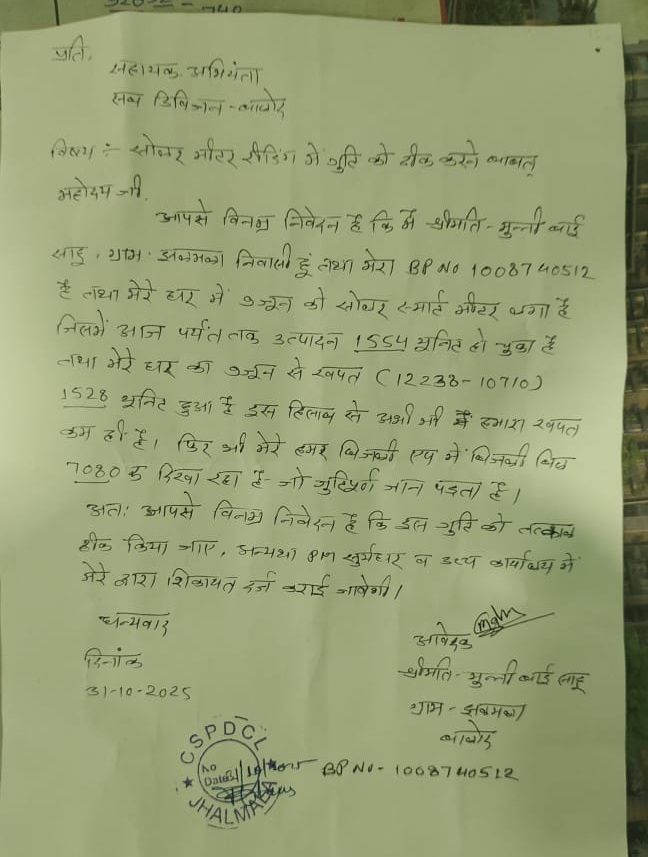 प्रति,
सहायक अभियंता
सब डिविजन - बालोद
विषय :- सोलर मीटर रीडिंग में त्रुटि को ठीक करने बाबत्
महोदय जी,
आपसे विनम्र निवेदन है कि मैं श्रीमति - मुन्नी बाई
साहू, ग्राम - झलमला निवासी हूं तथा मेरा BP No 1008740512
है तथा मेरे घर में 9 जून को सोलर स्मार्ट मीटर लगा है
जिसमें आज पर्यंत तक उत्पादन 1554 यूनिट हो चुका है
तथा मेरे घर का 9 जून से खपत (12238-10710)
1528 यूनिट हुआ है इस हिसाब से अभी भी हमारा खपत
कम ही है। फिर भी मेरे हमर बिजली एप में बिजली बिल
7080 रु दिखा रहा है - जो त्रुटिपूर्ण जान पड़ता है।
अतः आपसे विनम्र निवेदन है कि इस त्रुटि को तत्काल
ठीक किया जाए, अन्यथा PM सूर्यघर व उच्च कार्यालय में
मेरे द्वारा शिकायत दर्ज कराई जावेगी।
धन्यवाद
आवेदक
दिनांक
श्रीमति - मुन्नी बाई साहू
31-10-2025
ग्राम - झलमला
बालोद
CSPDCL
No
Date
JHALMALA
BP No - 1008740512